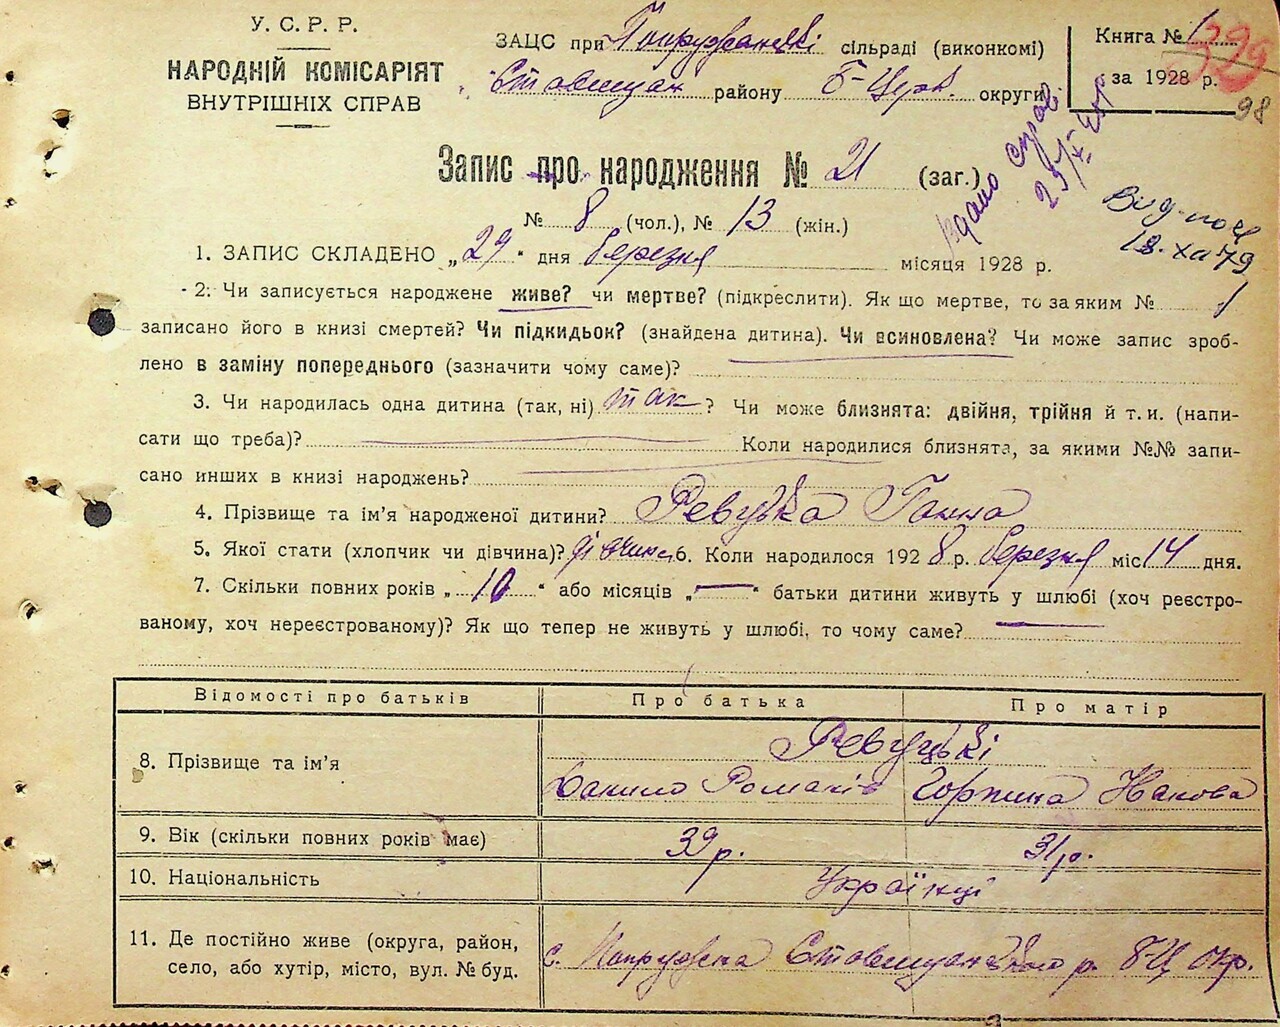 У. С. Р. Р.
НАРОДНІЙ КОМІСАРІЯТ
ВНУТРІШНІХ СПРАВ
ЗАЦС при Попружанські сільраді (виконкомі)
Ставищан району Б-Церк. округи
Книга № 1
за 1928 р.
329
98
Видано справ.
Запис про народження № 21 (заг.)
№ 8 (чол.), № 13 (жін.)
1. ЗАПИС СКЛАДЕНО „29“ дня березня місяця 1928 р.
18.XII 79
2. Чи записується народжене живе? чи мертве? (підкреслити). Як що мертве, то за яким №
записано його в книзі смертей? Чи підкидьок? (знайдена дитина). Чи всиновлена? Чи може запис зроб-
лено в заміну попереднього (зазначити чому саме)?
3. Чи народилась одна дитина (так, ні) так? Чи може близнята: двійня, трійня й т. и. (напи-
сати що треба)? Коли народилися близнята, за якими №№ запи-
сано инших в книзі народжень?
4. Прізвище та ім'я народженої дитини? Ревуцька Ганна
5. Якої статі (хлопчик чи дівчина)? дівчина 6. Коли народилося 1928 р. березня міс 14 дня.
7. Скільки повних років „10“ або місяців „—“ батьки дитини живуть у шлюбі (хоч реєстро-
ваному, хоч нереєстрованому)? Як що тепер не живуть у шлюбі, то чому саме?
Відомості про батьків Про батька Про матір
Ревуцькі
8. Прізвище та ім'я Данило Романів Горпина Якова
9. Вік (скільки повних років має) 39 р. 31 р.
10. Національність Українці
11. Де постійно живе (округа, район,
село, або хутір, місто, вул. № буд.
с. Попружна Ставищанського р. Б-Ц окр.